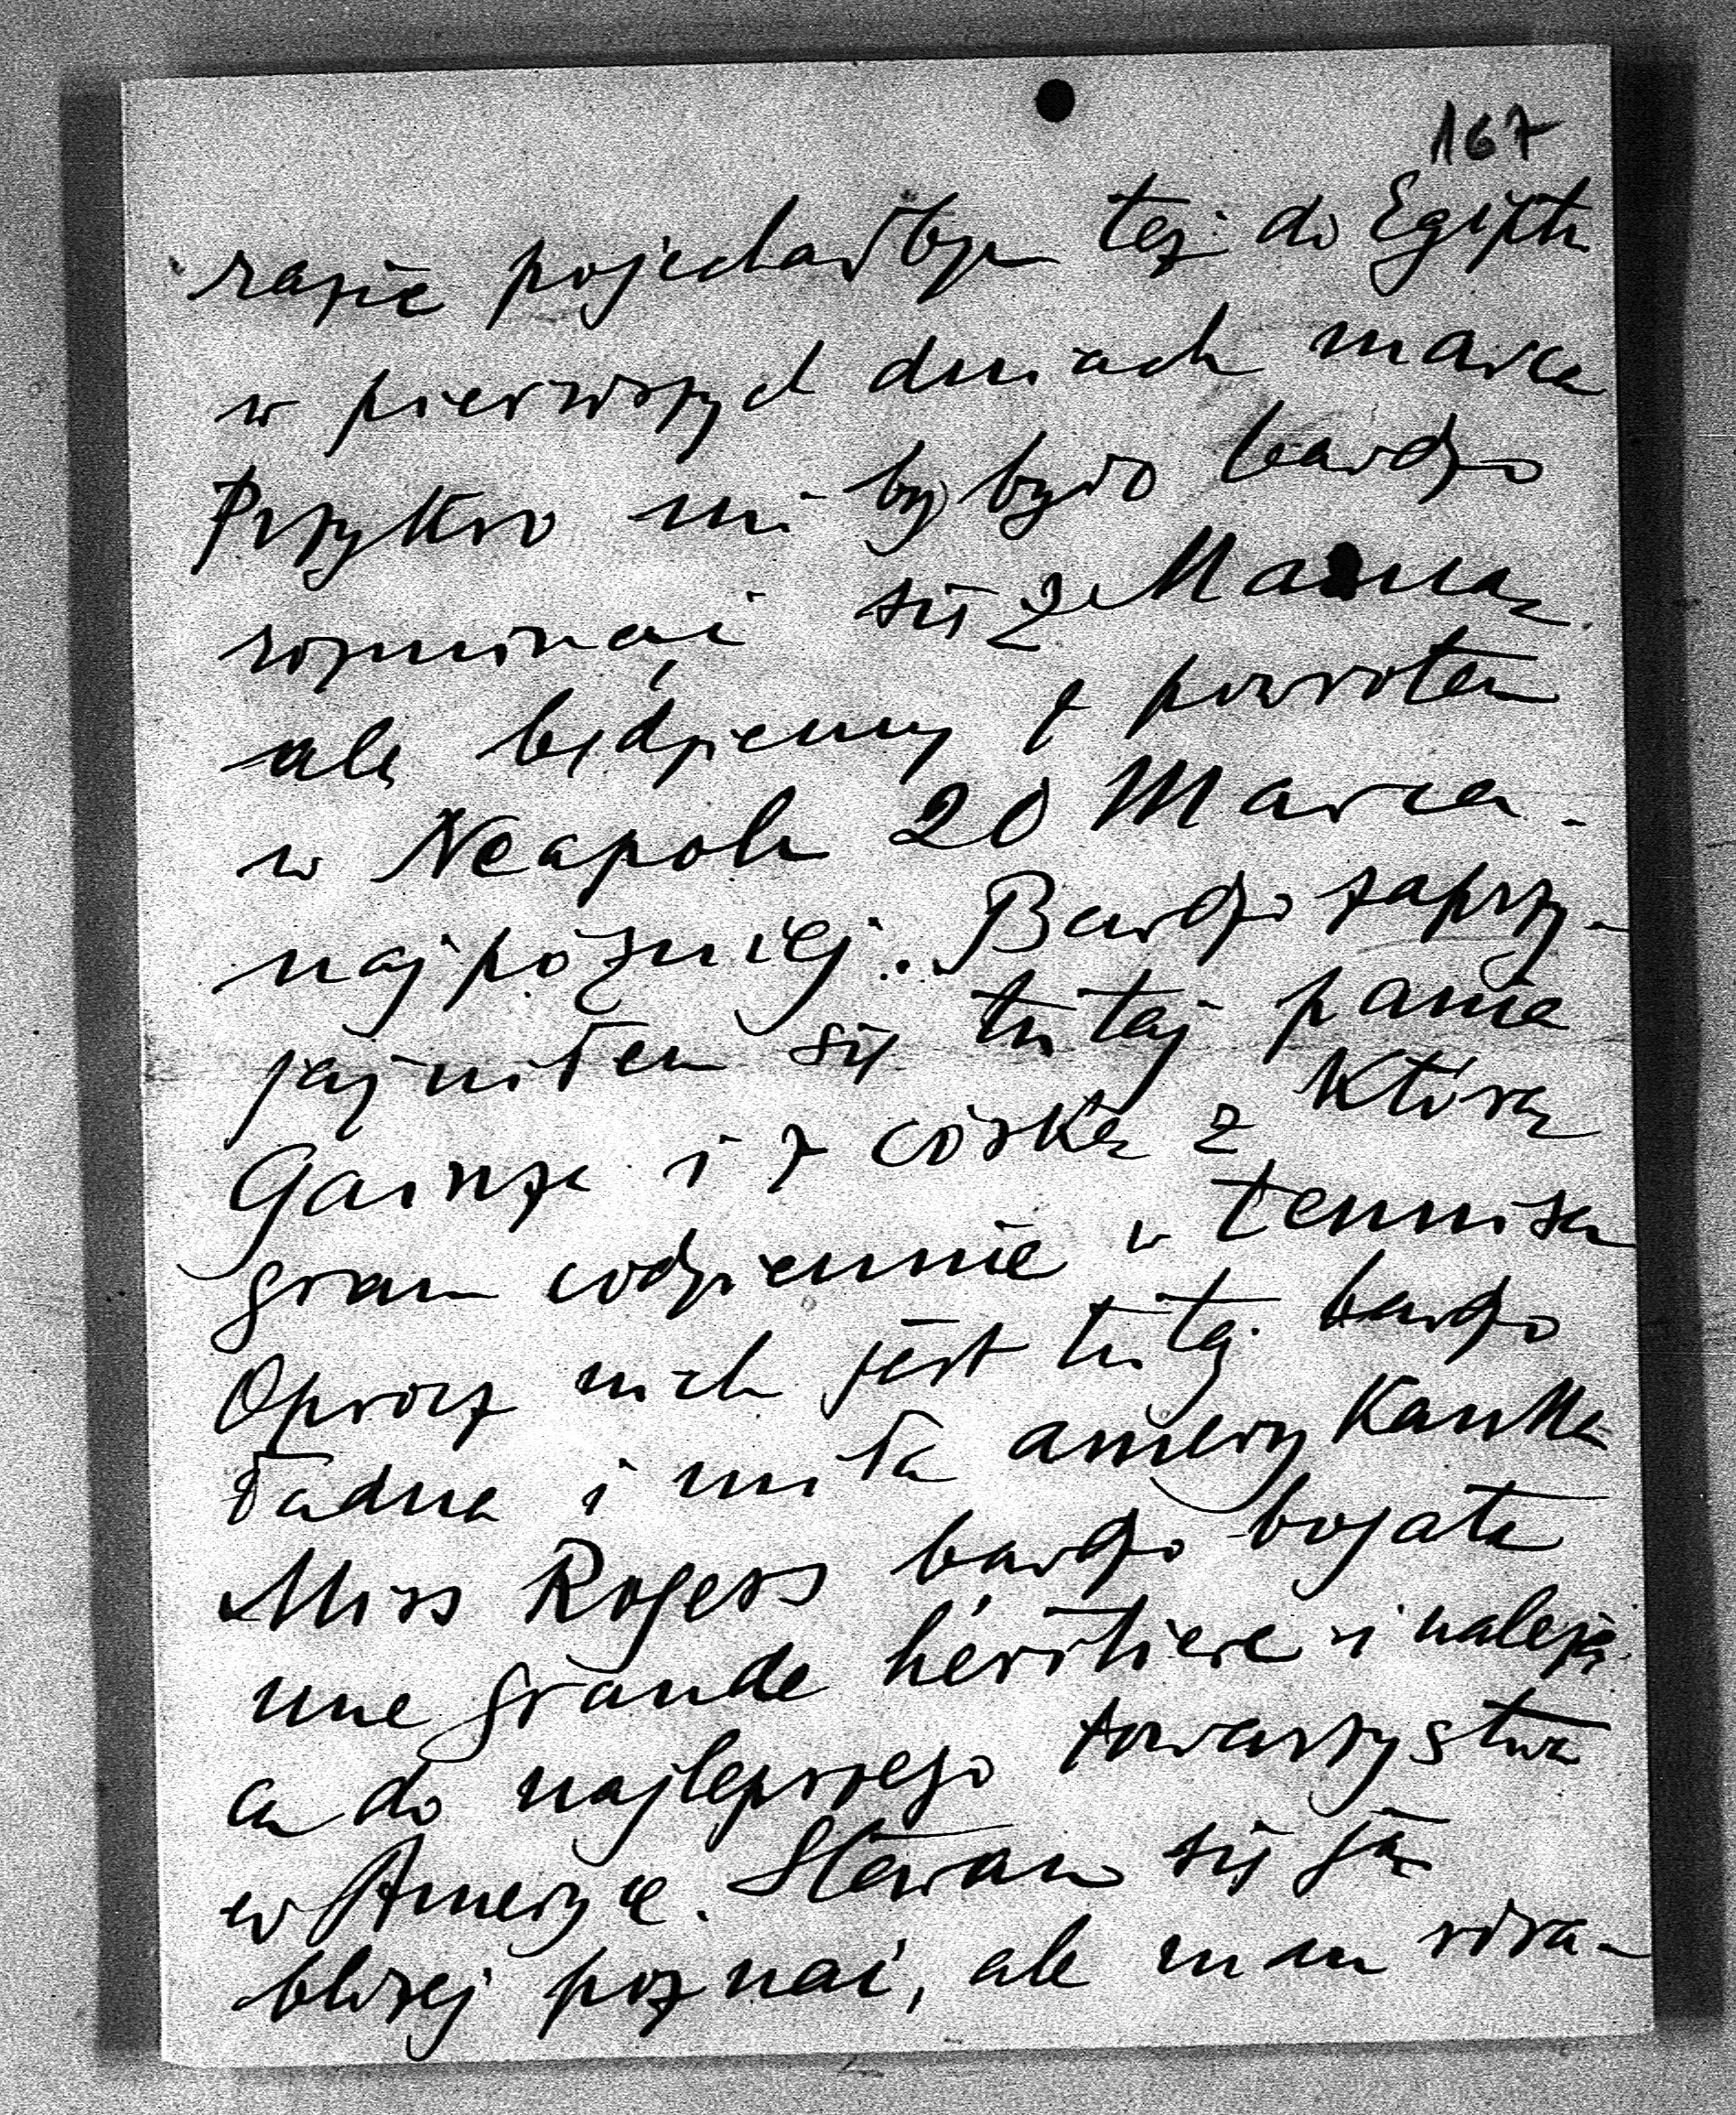 167
razie pojechałbym też do Egiptu
w pierwszych dniach marca
Przykro mi by było bardzo
rozminąć się z Mamą.
ale będziemy z powrotem
w Neapolu 20 Marca -
najpóźniej. Bardzo zaprzy-
jaźniłem się tutaj z
i z córką z którą
gram codziennie w tennisa
Oprócz nich jest tutaj bardzo
ładna i miła amerykanka
Miss Rogers bardzo bogata
une grande héritiere i należą-
ca do najlepszego towarzystwa
w Ameryce. Staram się ją
bliżej poznać, ale mam